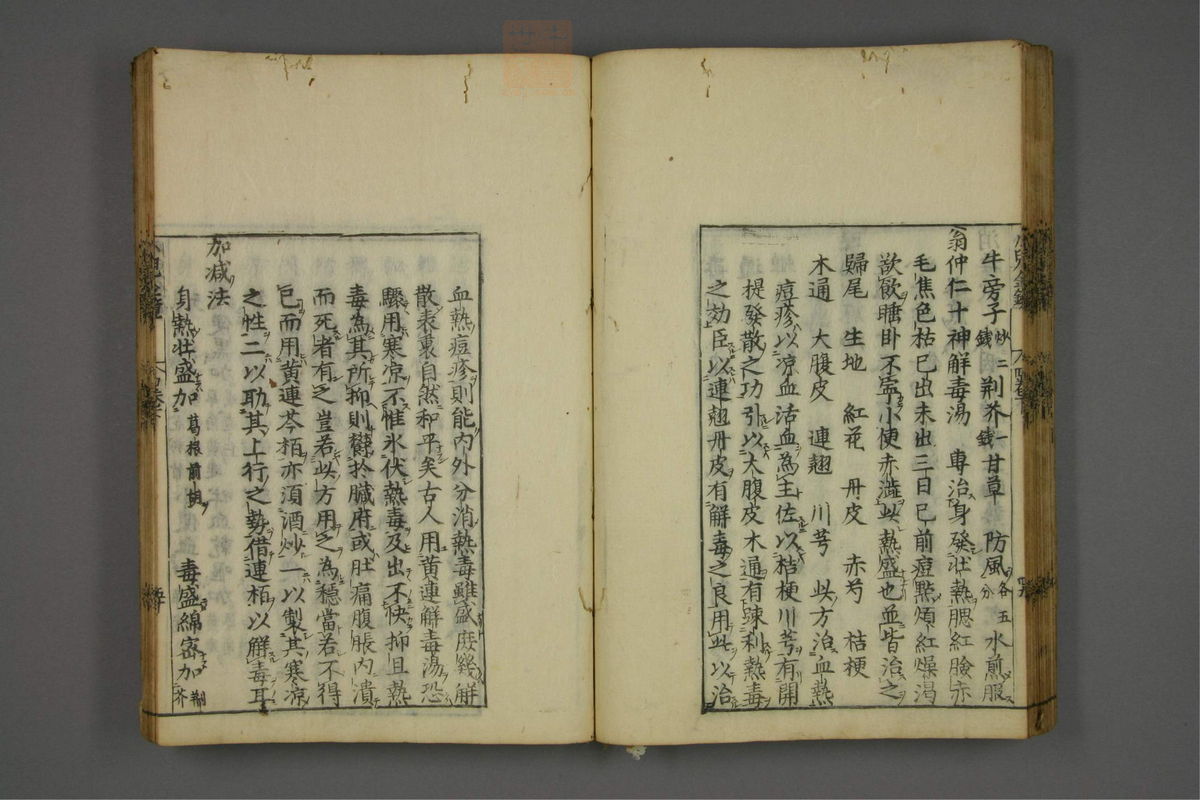 牛旁子炒二錢荆芥一錢甘草 防風各五分水煎服
翁仲仁十神解毒湯 專治身發壮熱腮紅臉赤
毛焦色枯已出未出三日已前痘點煩紅燥渴
欲飲睡卧不寧小便赤澁此熱盛也並皆治之
歸尾 生地 紅花 丹皮 赤芍 桔梗
木通 大腹皮 連翹 川芎 此方治血熱
痘疹以凉血活血為主佐以桔梗川芎有開
提發散之功引以大腹皮木通有疎利熱毒
之効臣以連翹丹皮有解毒之良用此以治
血熱痘疹則能内外分消熱毒雖盛庶㡬解
散表裏自然和平矣古人用黄連解毒湯恐
驟用寒凉不惟氷伏熱毒及出不快抑且熱
毒為其所抑則欝於臓府或肚痛腹脹内潰
而死者有之豈若此方用之為穩當若不得
已而用黄連芩栢亦須酒炒一以製其寒凉
之性二以助其上行之勢借連栢以解毒耳
加减法
身熱壮盛加葛根前胡 毒盛綿宻加荆芥